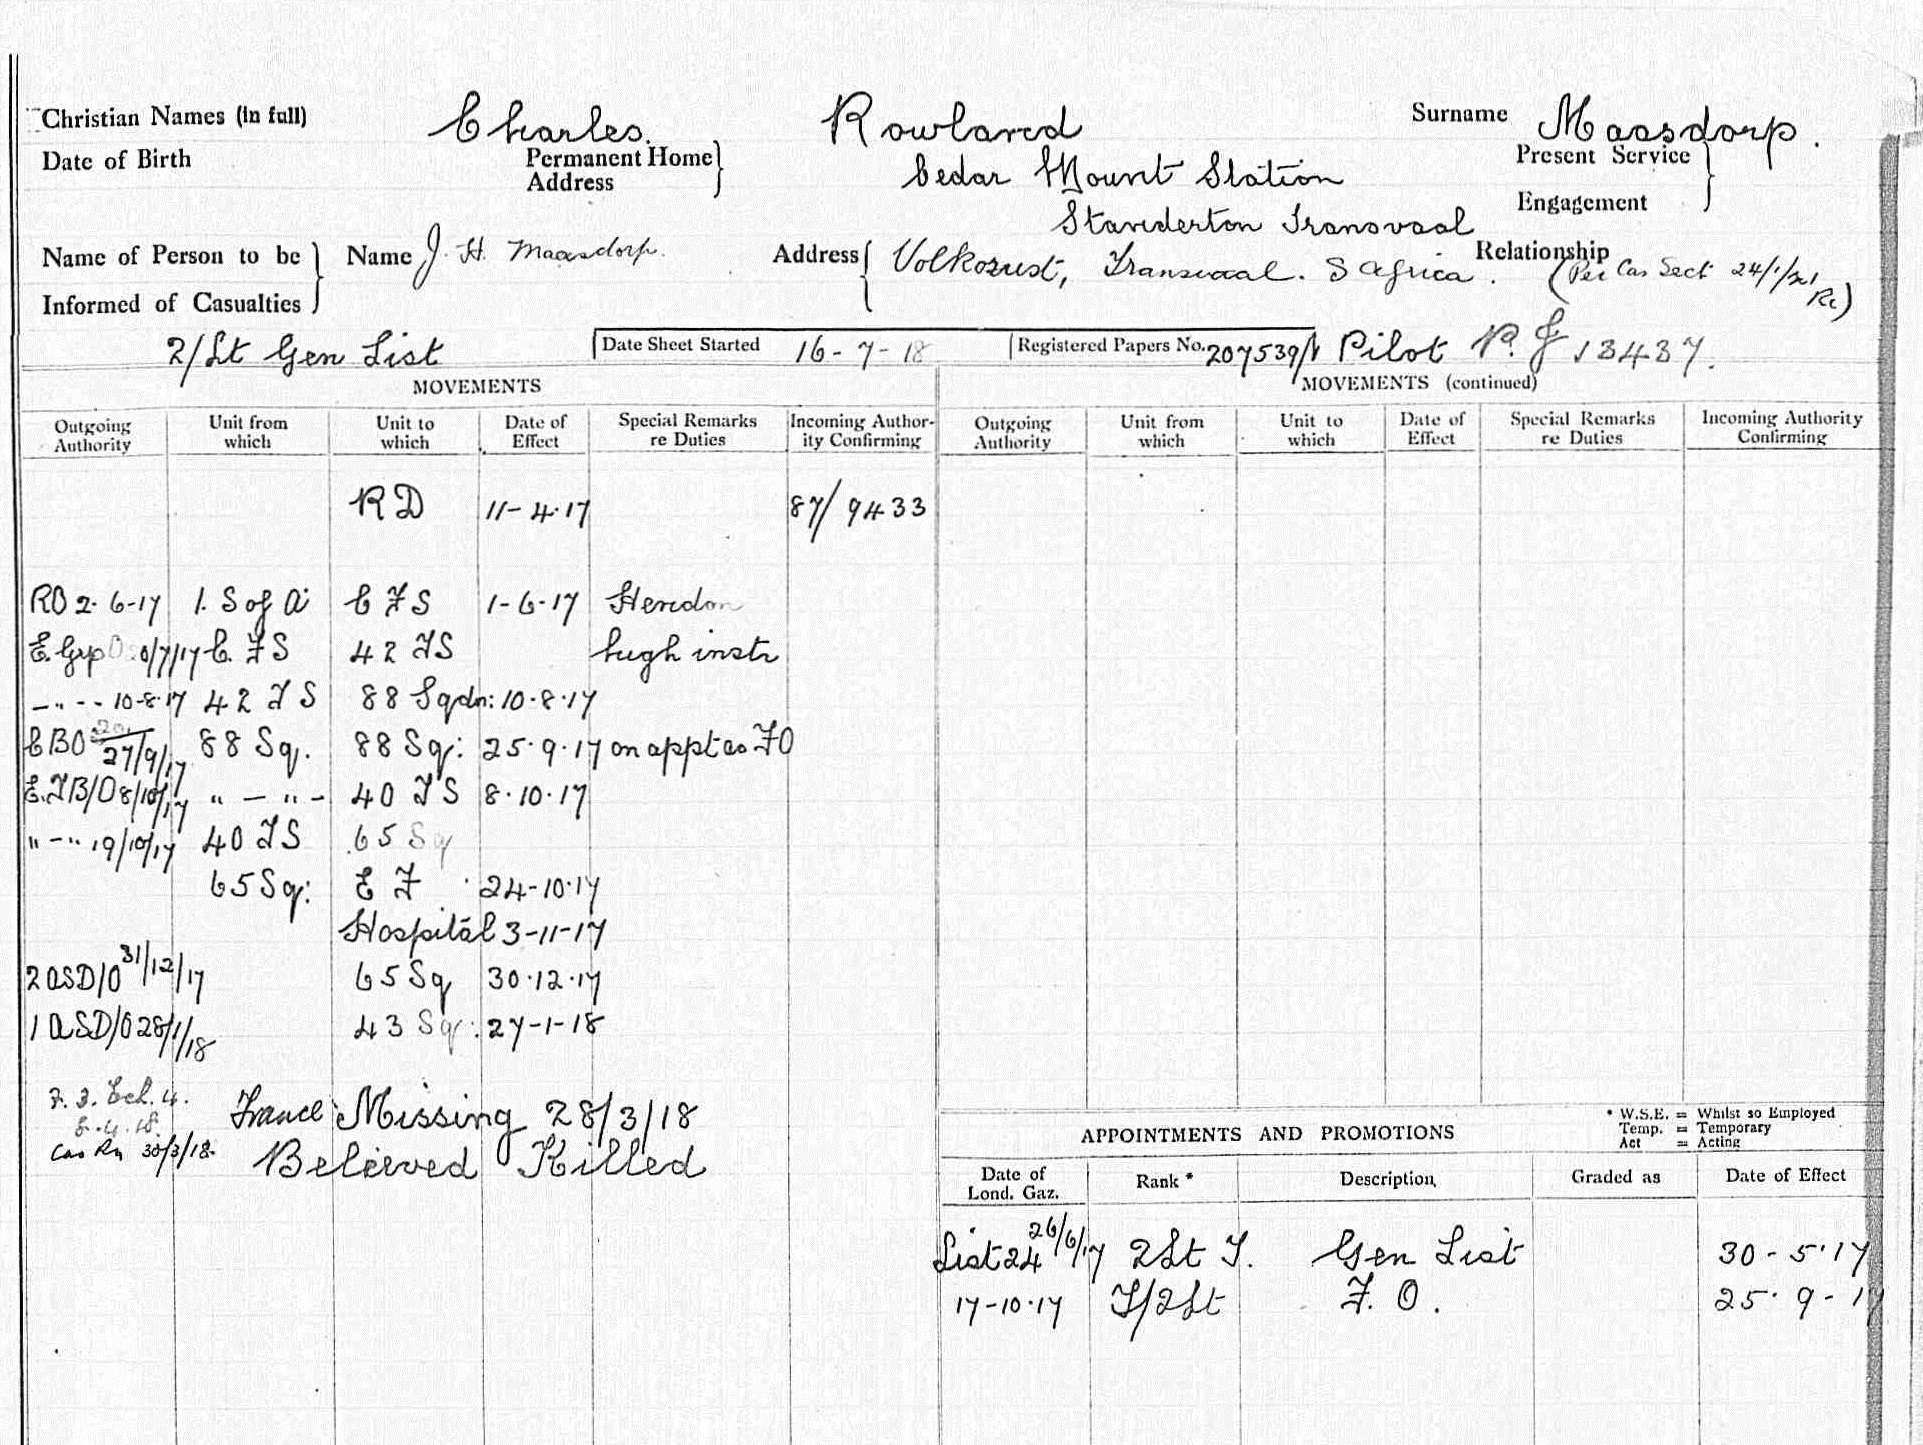 Christian Names (in full) Charles. Rowland Surname Maasdorp.
Date of Birth Permanent Home Address } Cedar Mount Station Present Service }
Standerton Transvaal Engagement
Name of Person to be Informed of Casualties } Name J. H. Maasdorp. Address { Volksrust, Transvaal. S Africa. Relationship (Per Cas Sect 24/1/21
2/Lt Gen List Date Sheet Started 16-7-18 Registered Papers No. 207539/1 Pilot P. J 13437.
MOVEMENTS MOVEMENTS (continued)
Outgoing Authority Unit from which Unit to which Date of Effect Special Remarks re Duties Incoming Authority Confirming Outgoing Authority Unit from which Unit to which Date of Effect Special Remarks re Duties Incoming Authority Confirming
RD 11-4-17 87/9433
RO 2-6-17 1. S of A C F S 1-6-17 Hendon
E. Grp /7/17 C. F S 42 TS high instr
-"-- 10-8-17 42 T S 88 Sqdn: 10-8-17
27/9/17 88 Sq. 88 Sq: 25-9-17 on appt as FO
E.TB/O 8/10/17 " - " - 40 T S 8-10-17
" - " 19/10/17 40 TS 65 Sq
65 Sq: E F 24-10-17
Hospital 3-11-17
2 ASD/O 31/12/17 65 Sq 30-12-17
1 ASD/O 28/1/18 43 Sq: 27-1-18
France Missing 28/3/18
Cas Rn 30/3/18. Believed Killed
* W.S.E. = Whilst so Employed
Temp. = Temporary
Act = Acting
APPOINTMENTS AND PROMOTIONS
Date of Lond. Gaz. Rank * Description Graded as Date of Effect
List 24 26/6/17 2Lt T. Gen List 30-5-17
17-10-17 T/2Lt F. O. 25-9-17